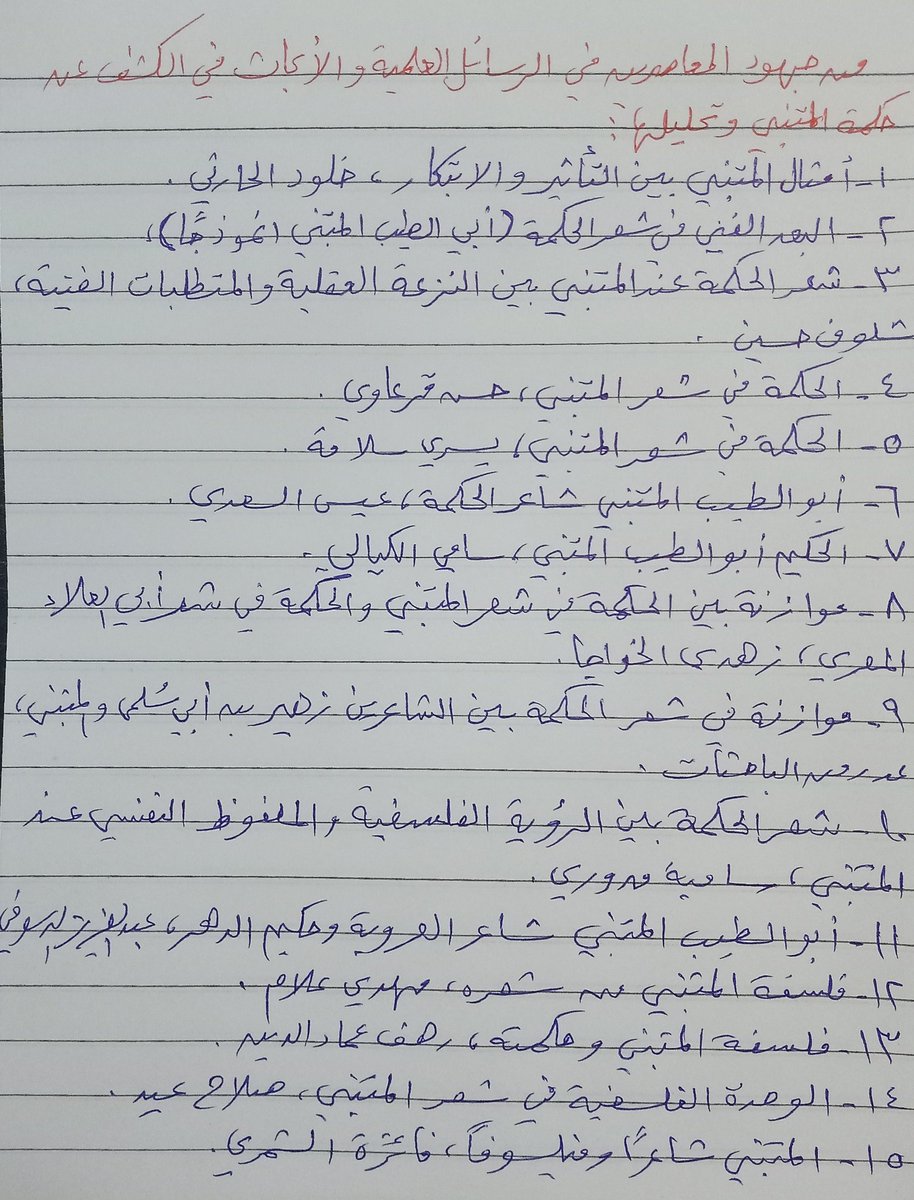 من جهود المعاصرين في الرسائل العلمية والأبحاث في الكشف عن
حكمة المتنبي وتحليلها:
١- أمثال المتنبي بين التأثير والابتكار، خلود الحارثي.
٢- البعد الفني في شعر الحكمة (أبي الطيب المتنبي انموذجًا)،
٣- شعر الحكمة عند المتنبي بين النزعة العقلية والمتطلبات الفنية،
شلوف حسين.
٤- الحكمة في شعر المتنبي، حسن قرعاوي.
٥- الحكمة في شعر المتنبي، يسري سلامة.
٦- أبو الطيب المتنبي شاعر الحكمة، عيسى السعدي.
٧- الحكيم أبو الطيب المتنبي، سامي الكيالي.
٨- موازنة بين الحكمة في شعر المتنبي والحكمة في شعر أبي العلاء
المعري، زهدي الخواجا.
٩- موازنة في شعر الحكمة بين الشاعرين زهير بن أبي سُلمى والمتنبي،
عدد من الباحثات.
١٠- شعر الحكمة بين الرؤية الفلسفية والملفوظ النفسي عند
المتنبي، سامية مدوري.
١١- أبو الطيب المتنبي شاعر العروبة وحكيم الدهر، عبدالعزيز الدسوقي
١٢- فلسفة المتنبي من شعره، مهدي علام.
١٣- فلسفة المتنبي وحكمته، رهف عماد الدين.
١٤- الوحدة الفلسفية في شعر المتنبي، صلاح عيد.
١٥- المتنبي شاعرًا وفيلسوفًا، فائزة الشمري.